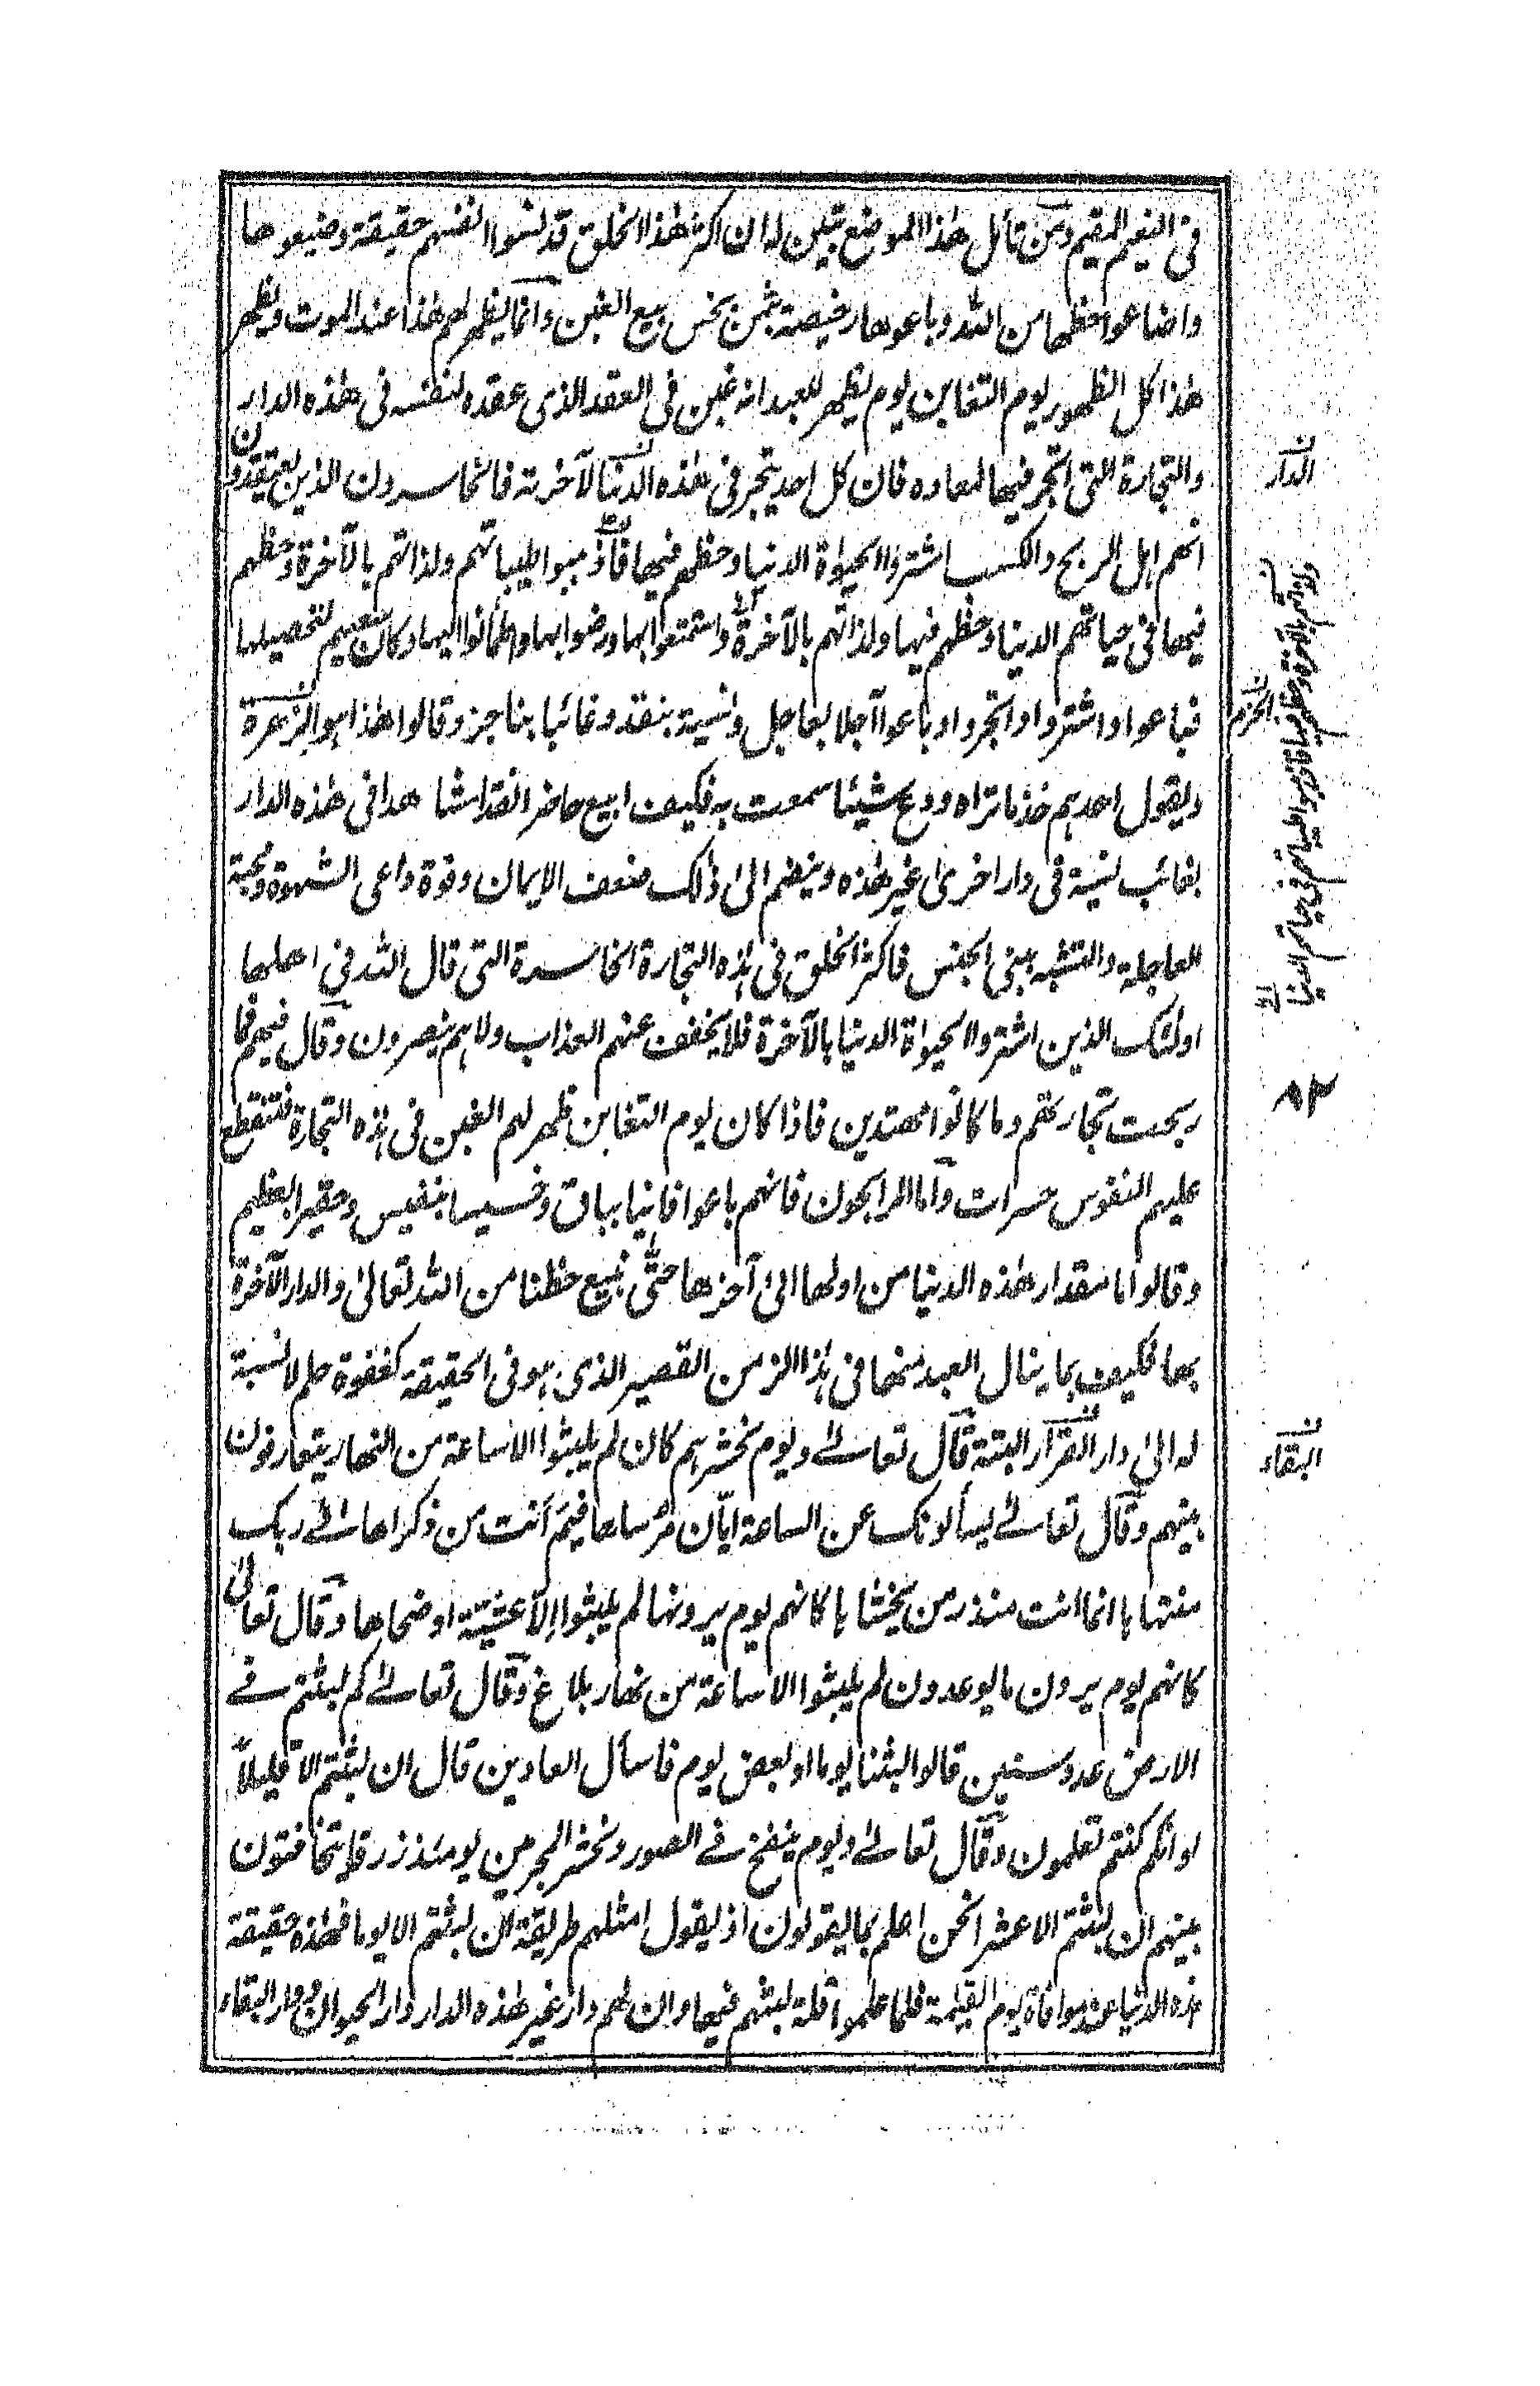 في النعيم المقيم ومن تأمل هذا الموضع تبين له ان اكثر هذا الخلق قد نسوا انفسهم حقيقة وضيعوها
واضاعوا حظها من الله وباعوها رخيصة بثمن بخس بيع الغبن وانما يظهر لهم هذا عند الموت ويظهر
هذا كل الظهور يوم التغابن يوم يظهر للعبد انه غبن فى العقد الذى عقده لنفسه فى هذه الدار
والتجارة التى اتجر فيها لمعاده فان كل احد يتجر فى هذه الدنيا لآخرته فالخاسرون الذين يعتقدون
انهم اهل الربح والكسب اشتروا الحيوة الدنيا وحظهم فيها فأذهبوا طيباتهم ولذاتهم بالآخرة وحظهم
فيها فى حياتهم الدنيا وحظهم فيها ولذاتهم بالآخرة واستمتعوا بها ورضوا بها واطمأنوا اليها وكان سعيهم لتحصيلها
فباعوا واشتروا واتجروا وباعوا آجلا بعاجل ونسية بنقد وغائبا بناجز وقالوا هذا هو الزهرة
ويقول احدهم خذ ما تراه ودع شيئا سمعت به فكيف ابيع حاضر انقدا مشاهدا فى هذه الدار
بغائب نسية فى دار اخرى غير هذه وينضم الى ذلك ضعف الايمان وقوة داعى الشهوة ومحبة
العاجلة والتشبه ببنى الجنس فاكثر الخلق فى هذه التجارة الخاسرة التى قال الله فى اهلها
اولئك الذين اشتروا الحيوة الدنيا بالآخرة فلا يخفف عنهم العذاب ولا هم ينصرون وقال فيهم فما
ربحت تجارتهم وما كانوا مهتدين فاذا كان يوم التغابن ظهر لهم الغبن فى هذه التجارة فتتقطع
عليهم النفوس حسرات واما الرابحون فانهم باعوا فانيا بباق وخسيسا بنفيس وحقيرا بعظيم
وقالوا ما مقدار هذه الدنيا من اولها الى آخرها حتى نبيع حظنا من الله تعالى والدار الآخرة
بها فكيف بما ينال العبد منها فى هذا الزمن القصير الذى هو فى الحقيقة كغفوة حلم لا نسبة
له الى دار القرار البتة قال تعالى ويوم نحشرهم كان لم يلبثوا الا ساعة من النهار يتعارفون
بينهم وقال تعالى يسألونك عن الساعة ايّان مُرساها فيمَ أنت من ذكراها الى ربك
منتهاها انما انت منذر من يخشاها كانهم يوم يرونها لم يلبثوا إلا عشيّة او ضحاها وقال تعالى
كانهم يوم يرون ما يوعدون لم يلبثوا الا ساعة من نهار بلاغ وقال تعالى كم لبثتم فى
الارض عدد سنين قالوا لبثنا يوما او بعض يوم فاسأل العادين قال ان لبثتم الا قليلاً
لو انكم كنتم تعلمون وقال تعالى ويوم ينفخ فى الصور ونحشر المجرمين يومئذ زرقا يتخافتون
بينهم ان لبثتم الا عشرا نحن اعلم بما يقولون اذ يقول امثلهم طريقة ان لبثتم الا يوما فهذه حقيقة
هذه الدنيا عند موافاة يوم القيٰمة فلما علموا قلة لبثهم فيها وان لهم دار غير هذه الدار دار الحيوان ودار البقاء
الدار
ولذاتهم بالآخرة وحظهم فيها فاذهبوا طيباتهم فى حياتهم الدنيا
٨٢
البقاء